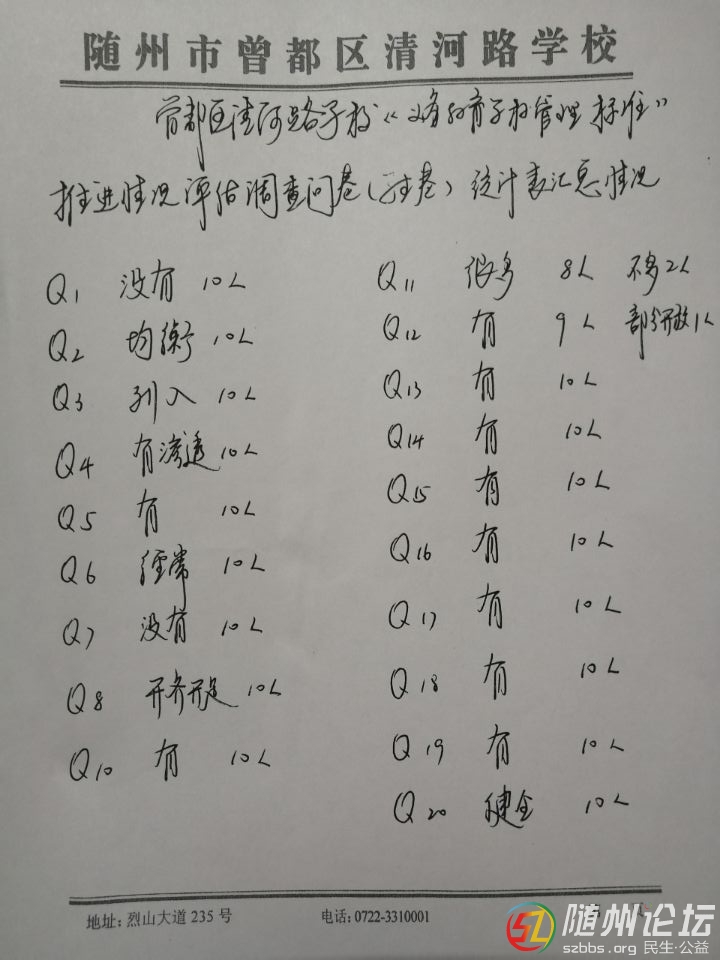 随州市曾都区清河路学校
曾都区清河路学校《义务教育学校管理标准》
推进情况评估调查问卷(学生卷)统计表汇总情况
Q1 没有 10人
Q2 均衡 10人
Q3 列入 10人
Q4 有渗透 10人
Q5 有 10人
Q6 经常 10人
Q7 没有 10人
Q8 开齐开足 10人
Q10 有 10人
Q11 很多 8人 不多2人
Q12 有 9人 部分开放1人
Q13 有 10人
Q14 有 10人
Q15 有 10人
Q16 有 10人
Q17 有 10人
Q18 有 10人
Q19 有 10人
Q20 健全 10人
地址: 烈山大道 235 号 电话: 0722-3310001
随州论坛
szbbs.org 民生·公益